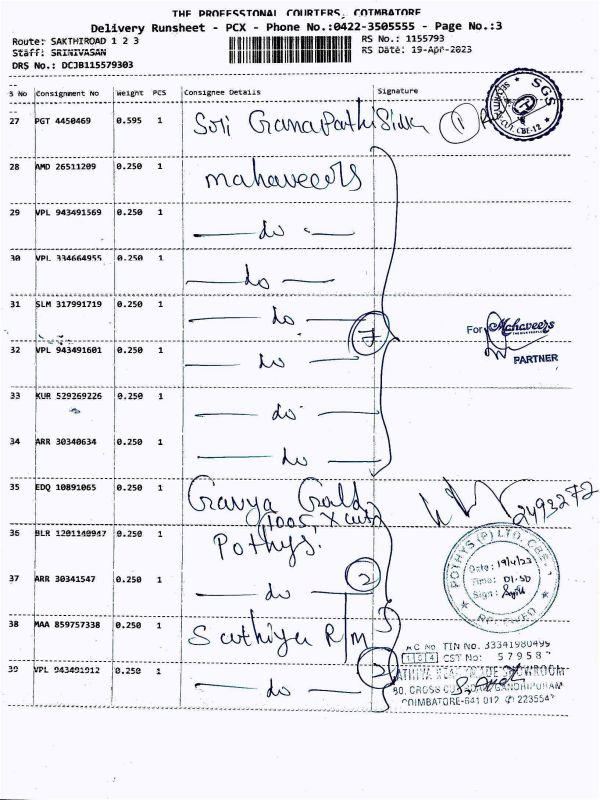 THE PROFESSIONAL COURIERS, COIMBATORE
Delivery Runsheet - PCX - Phone No.:0422-3505555 - Page No.:3
Route: SAKTHIROAD 1 2 3 RS No.: 1155793
Staff: SRINIVASAN RS Date: 19-Apr-2023
DRS No.: DCJB115579303
S No Consignment No Weight PCS Consignee Details Signature
27 PGT 4450469 0.595 1 Sori GanapathiSilk 1
28 AMD 26511209 0.250 1 mahaveers
29 VPL 943491569 0.250 1 do
30 VPL 334664955 0.250 1 do
31 SLM 317991719 0.250 1 do
7
For Mahaveers
PARTNER
32 VPL 943491601 0.250 1 do
33 KUR 529269226 0.250 1 do
34 ARR 30340634 0.250 1 do
35 EDQ 10891065 0.250 1 Gavya Gold
2493272
(100S, X cut
36 BLR 1201140947 0.250 1 Pothys.
POTHYS (P) LTD. CBE
Date: 19/4/23
Time: 01.50
Sign:
RECEIVED
37 ARR 30341547 0.250 1 do 2
38 MAA 859757338 0.250 1 Sathiya R/m
TIN No. 33341980499
CST No: 57958
39 VPL 943491912 0.250 1 do
SHOWROOM
80, CROSS CUT ROAD, GANDHIPURAM
COIMBATORE-641 012 223554
SGS
CBE-12